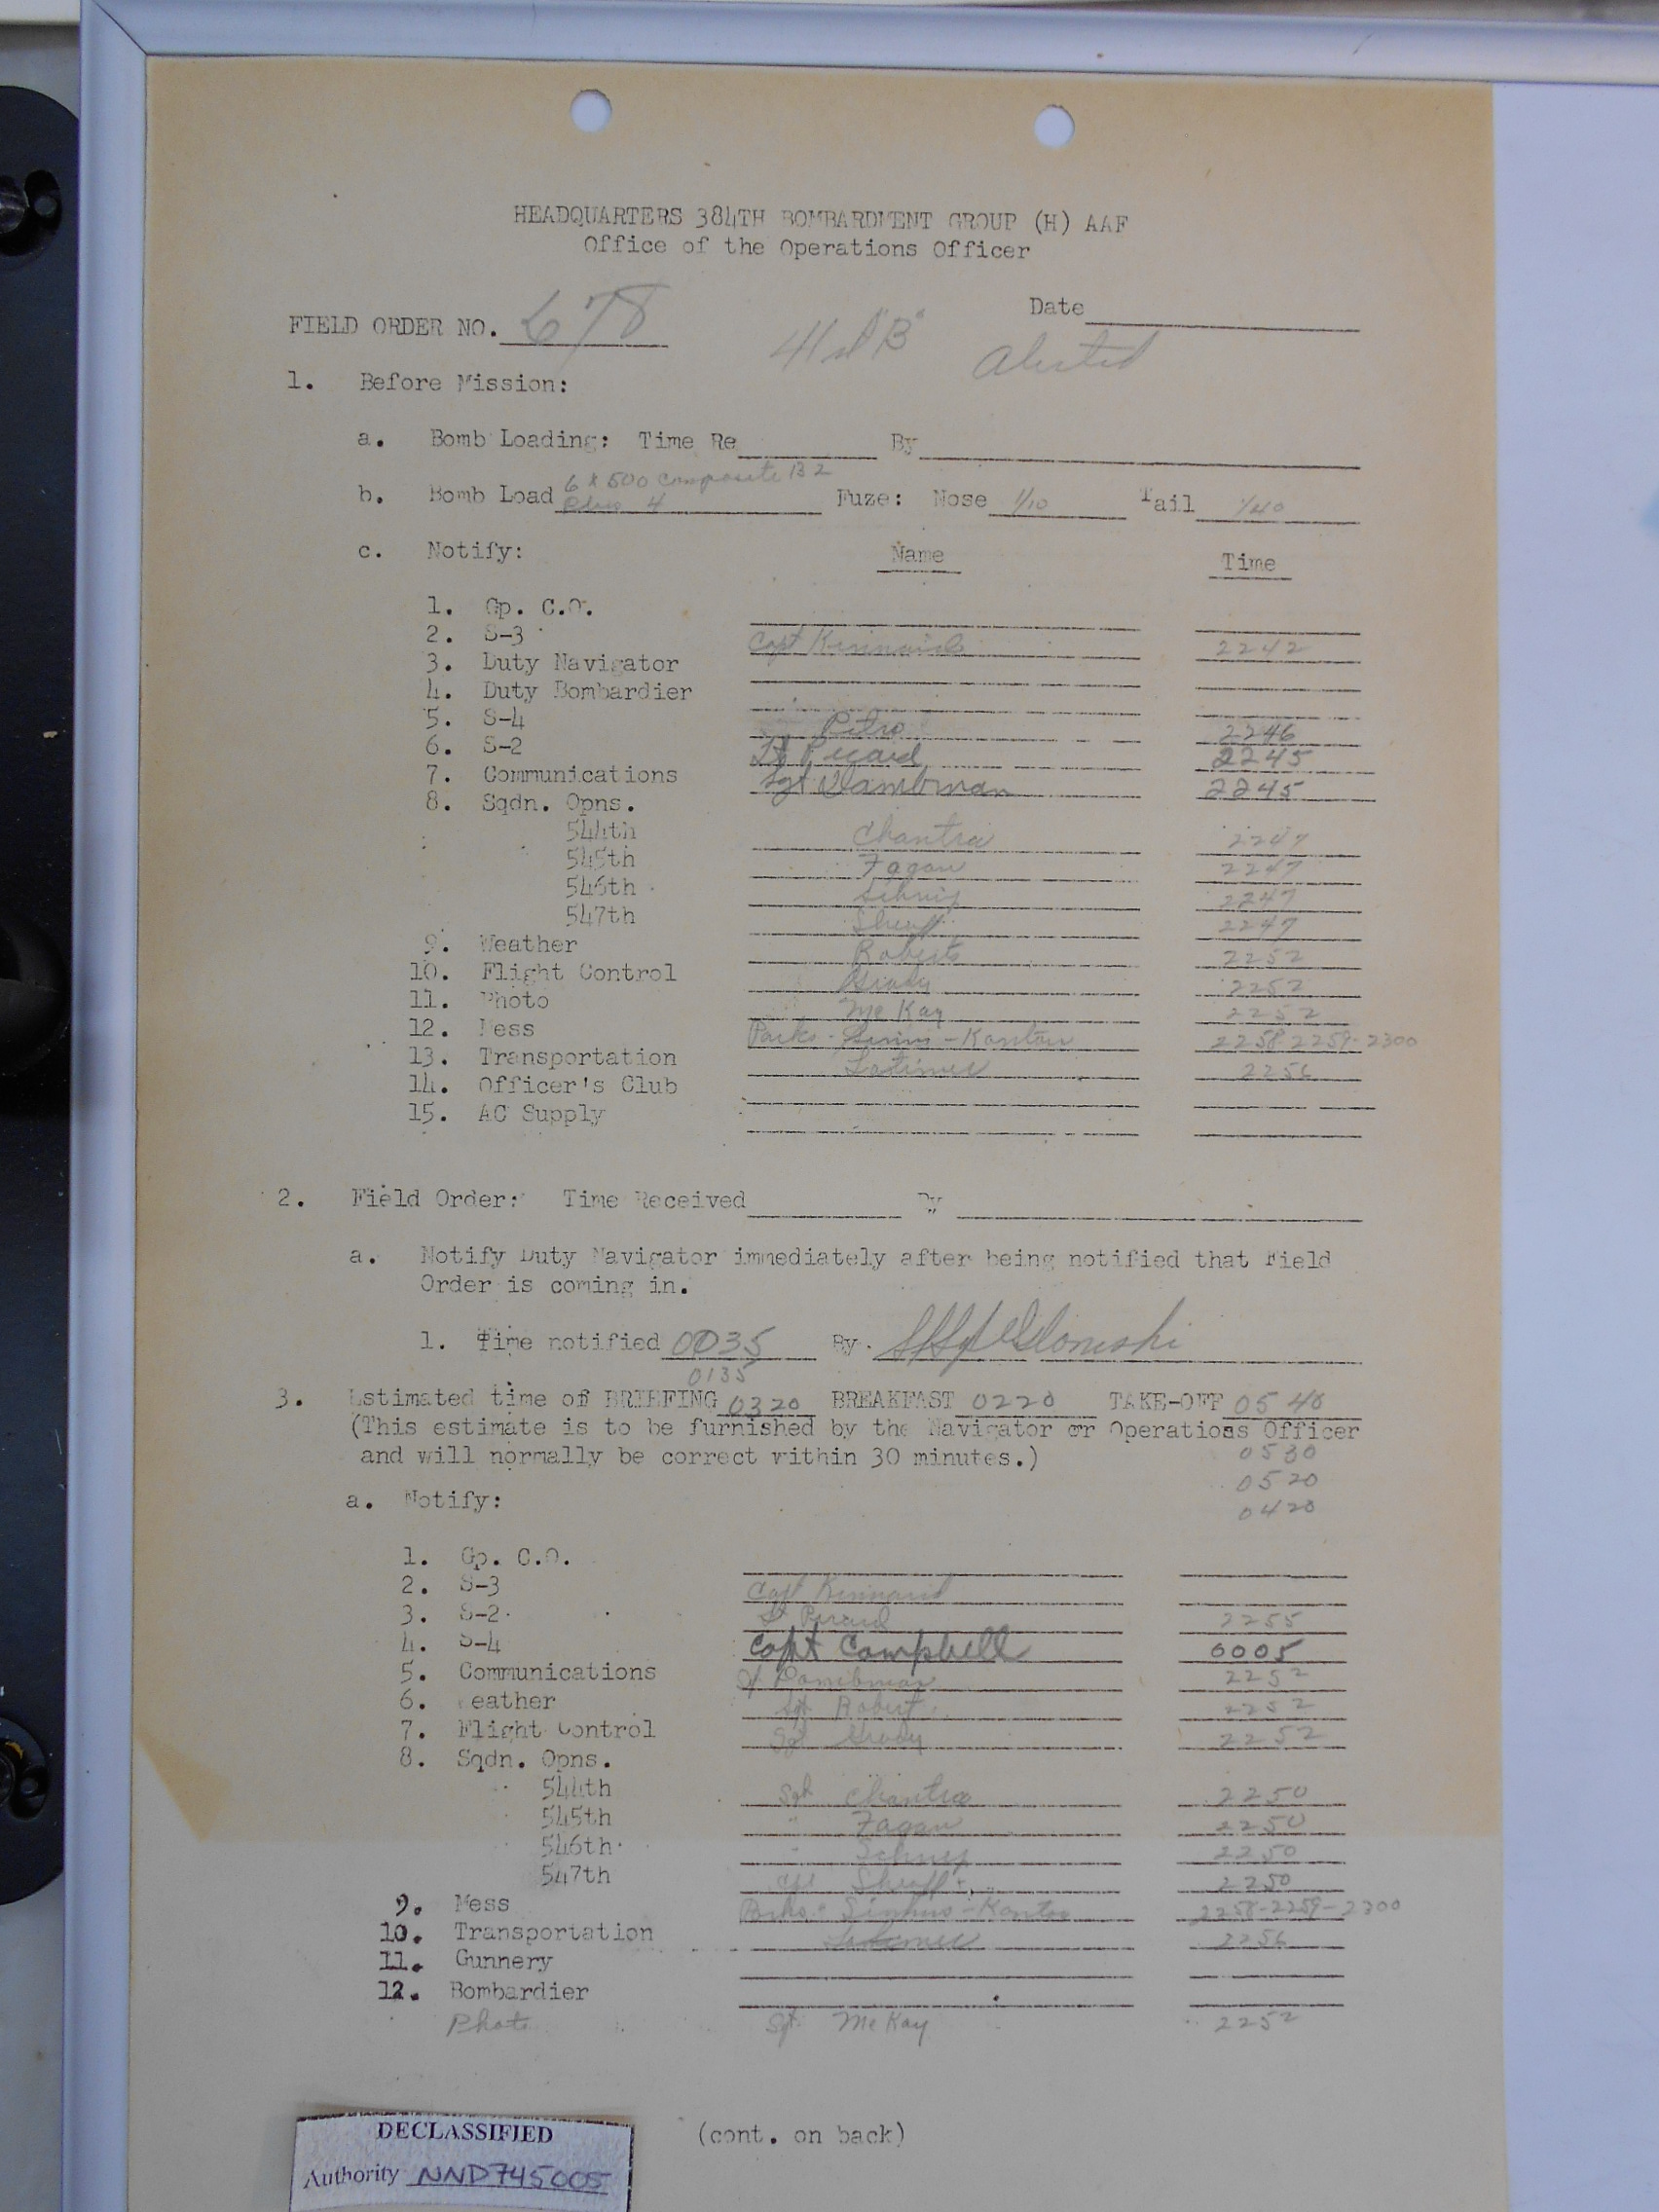 HEADQUARTERS 384TH BOMBARDMENT GROUP (H) AAF
Office of the Operations Officer
Date
FIELD ORDER NO. 678 41st "B" Alerted
1. Before Mission:
a. Bomb Loading: Time Re By
b. Bomb Load 6 x 500 Composite B2 Plus 4 Fuze: Nose 1/10 Tail 1/40
c. Notify: Name Time
1. Gp. C.O.
2. S-3 Capt Kinnaird 2242
3. Duty Navigator
4. Duty Bombardier
5. S-4 Petro 2246
6. S-2 Lt Picard 2245
7. Communications Sgt 2245
8. Sqdn. Opns.
544th Chantra 2247
545th Fagan 2247
546th 2247
547th Sheaff 2247
9. Weather Roberts 2252
10. Flight Control Grady 2252
11. Photo McKay 2252
12. Mess Parks - - Kanton 2258-2259-2300
13. Transportation Latimer 2256
14. Officer's Club
15. AC Supply
2. Field Order: Time Received By
a. Notify Duty Navigator immediately after being notified that Field
Order is coming in.
1. Time notified 0035 By S/Sgt
0135
3. Estimated time of BRIEFING 0320 BREAKFAST 0220 TAKE-OFF 0540
(This estimate is to be furnished by the Navigator or Operations Officer
and will normally be correct within 30 minutes.) 0530
0520
a. Notify: 0420
1. Gp. C.O.
2. S-3 Capt Kinnaird
3. S-2 Lt Picard 2255
4. S-4 Capt Campbell 0005
5. Communications 2252
6. eather Sgt Robert 2252
7. Flight Control Sgt Grady 2252
8. Sqdn. Opns.
544th Sgt Chantra 2250
545th " Fagan 2250
546th " 2250
547th Cpl Sheaff 2250
9. Mess Parks - - Kanton 2258-2259-2300
10. Transportation Latimer 2256
11. Gunnery
12. Bombardier
Photo Sgt McKay 2252
(cont. on back)
DECLASSIFIED
Authority NND745005